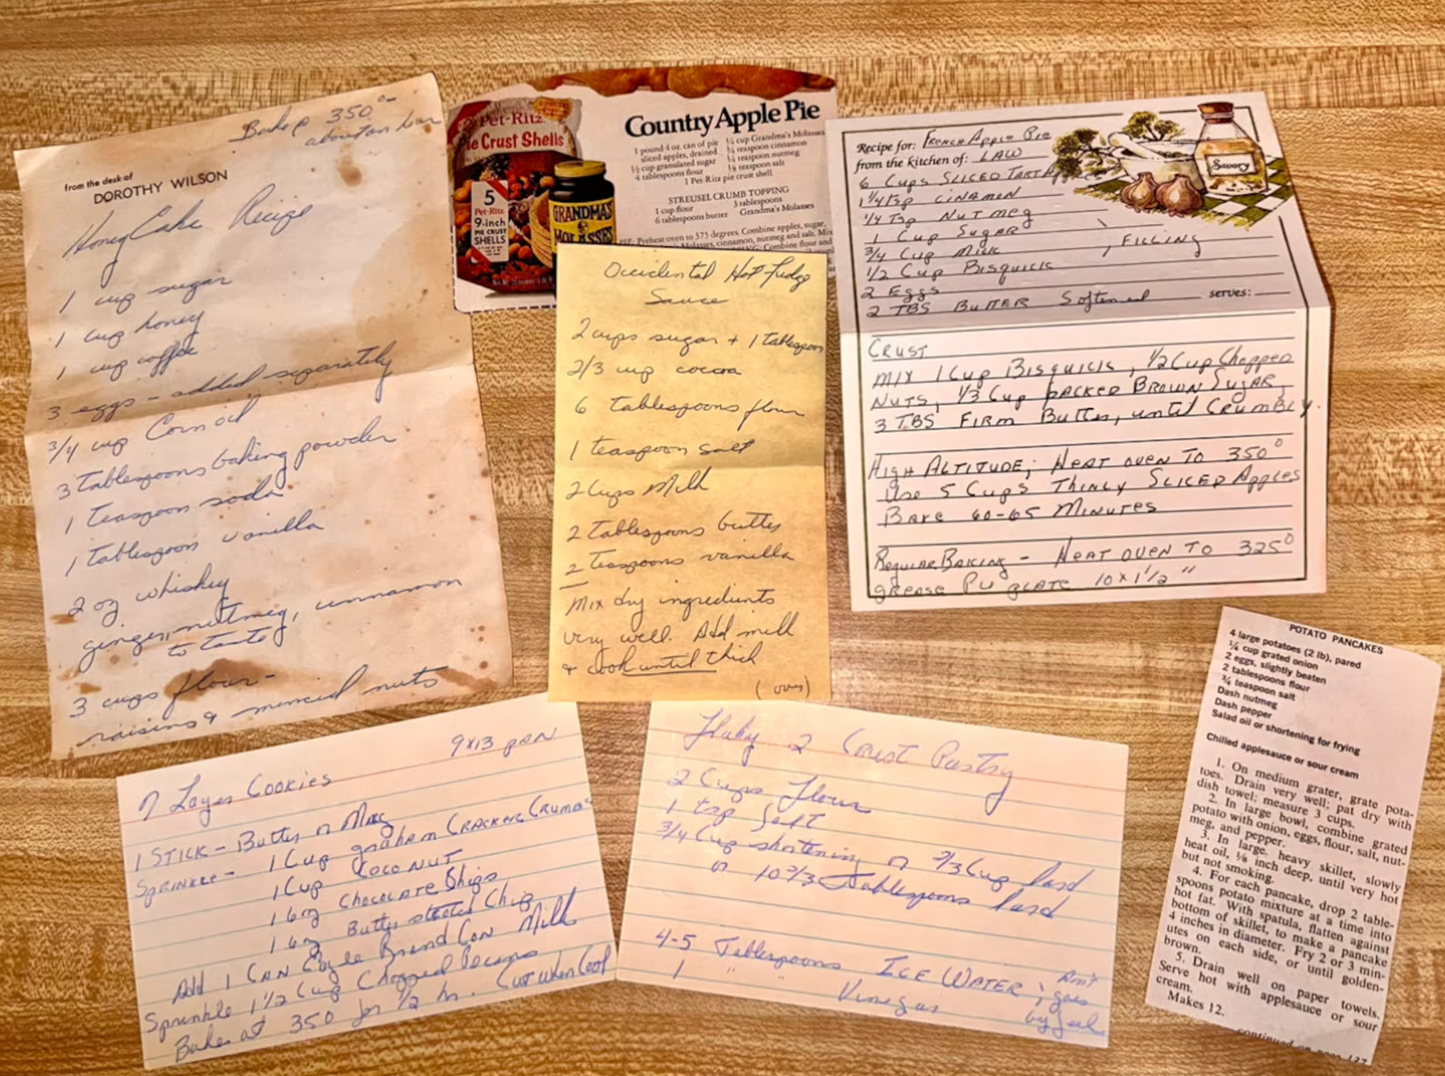 Bake @ 350°-
about an hour
from the desk of
DOROTHY WILSON
Honey Cake Recipe
1 cup sugar
1 cup honey
1 cup coffee
3 eggs - added separately
3/4 cup Corn oil
3 Tablespoons baking powder
1 teaspoon soda
1 tablespoon vanilla
2 oz whiskey
ginger, nutmeg, cinnamon
to taste
3 cups flour-
raisins & minced nuts
Pet-Ritz
Pie Crust Shells
5
Pet-Ritz
9-inch
PIE CRUST
SHELLS
GRANDMA'S
MOLASSES
Country Apple Pie
1 pound 4 oz. can of pie
sliced apples, drained
½ cup granulated sugar
4 tablespoons flour
¼ cup Grandma's Molasses
¼ teaspoon cinnamon
⅛ teaspoon nutmeg
⅛ teaspoon salt
1 Pet-Ritz pie crust shell
STREUSEL CRUMB TOPPING
1 cup flour
6 tablespoons butter
3 tablespoons
Grandma's Molasses
Preheat oven to 375 degrees. Combine apples, sugar,
Molasses, cinnamon, nutmeg and salt. Mix
Combine flour and
Occidental Hot-Fudge
Sauce
2 cups sugar + 1 tablespoon
2/3 cup cocoa
6 tablespoons flour
1 teaspoon salt
2 Cups Milk
2 Tablespoons butter
2 Teaspoons vanilla
Mix dry ingredients
very well. Add milk
& cook until thick
(over)
Recipe for: FRENCH APPLE PIE
from the kitchen of: LAW
6 Cups SLICED TART Apples
1¼ Tsp CINAMON
¼ Tsp NUTMEG
1 Cup SUGAR
3/4 Cup MILK
, FILLING
1/2 Cup BISQUICK
2 EGGS
2 TBS BUTTER Softened
serves:
CRUST
MIX 1 Cup BISQUICK, 1/2 Cup Chopped
NUTS, 1/3 Cup PACKED BROWN SUGAR,
3 TBS FIRM Butter, until CRUMBLY.
HIGH ALTITUDE; HEAT OVEN TO 350°
Use 5 Cups THINLY SLICED Apples
BAKE 60-65 MINUTES
REGULAR BAKING - HEAT OVEN TO 325°
grease Pie plate 10x1½"
9x13 pan
7 Layer Cookies
1 STICK - Butter or Marg
Sprinkle - 1 Cup graham CRACKER CRUMBS
1 Cup COCONUT
1 6oz CHOCOLATE Chips
1 6oz Butterscotch Chips
Add 1 CAN Eagle Brand Con Milk
Sprinkle 1 1/2 Cup Chopped Pecans
Bake at 350 for 1/2 hr. Cut when Cool
Flaky 2 Crust Pastry
2 Cups Flour
1 tsp Salt
3/4 Cup shortening or 2/3 Cup lard
or 10 2/3 Tablespoons lard
4-5 Tablespoons ICE WATER ;
1 " " Vinegar
Am't
goes
by feel
POTATO PANCAKES
4 large potatoes (2 lb), pared
¼ cup grated onion
2 eggs, slightly beaten
2 tablespoons flour
¾ teaspoon salt
Dash nutmeg
Dash pepper
Salad oil or shortening for frying
Chilled applesauce or sour cream
1. On medium grater, grate pota-
toes. Drain very well; pat dry with
dish towel; measure 3 cups.
2. In large bowl, combine grated
potato with onion, eggs, flour, salt, nut-
meg, and pepper.
3. In large, heavy skillet, slowly
heat oil, ⅛ inch deep, until very hot
but not smoking.
4. For each pancake, drop 2 table-
spoons potato mixture at a time into
hot fat. With spatula, flatten against
bottom of skillet, to make a pancake
4 inches in diameter. Fry 2 or 3 min-
utes on each side, or until golden-
brown.
5. Drain well on paper towels.
Serve hot with applesauce or sour
cream.
Makes 12.
continued on page 137